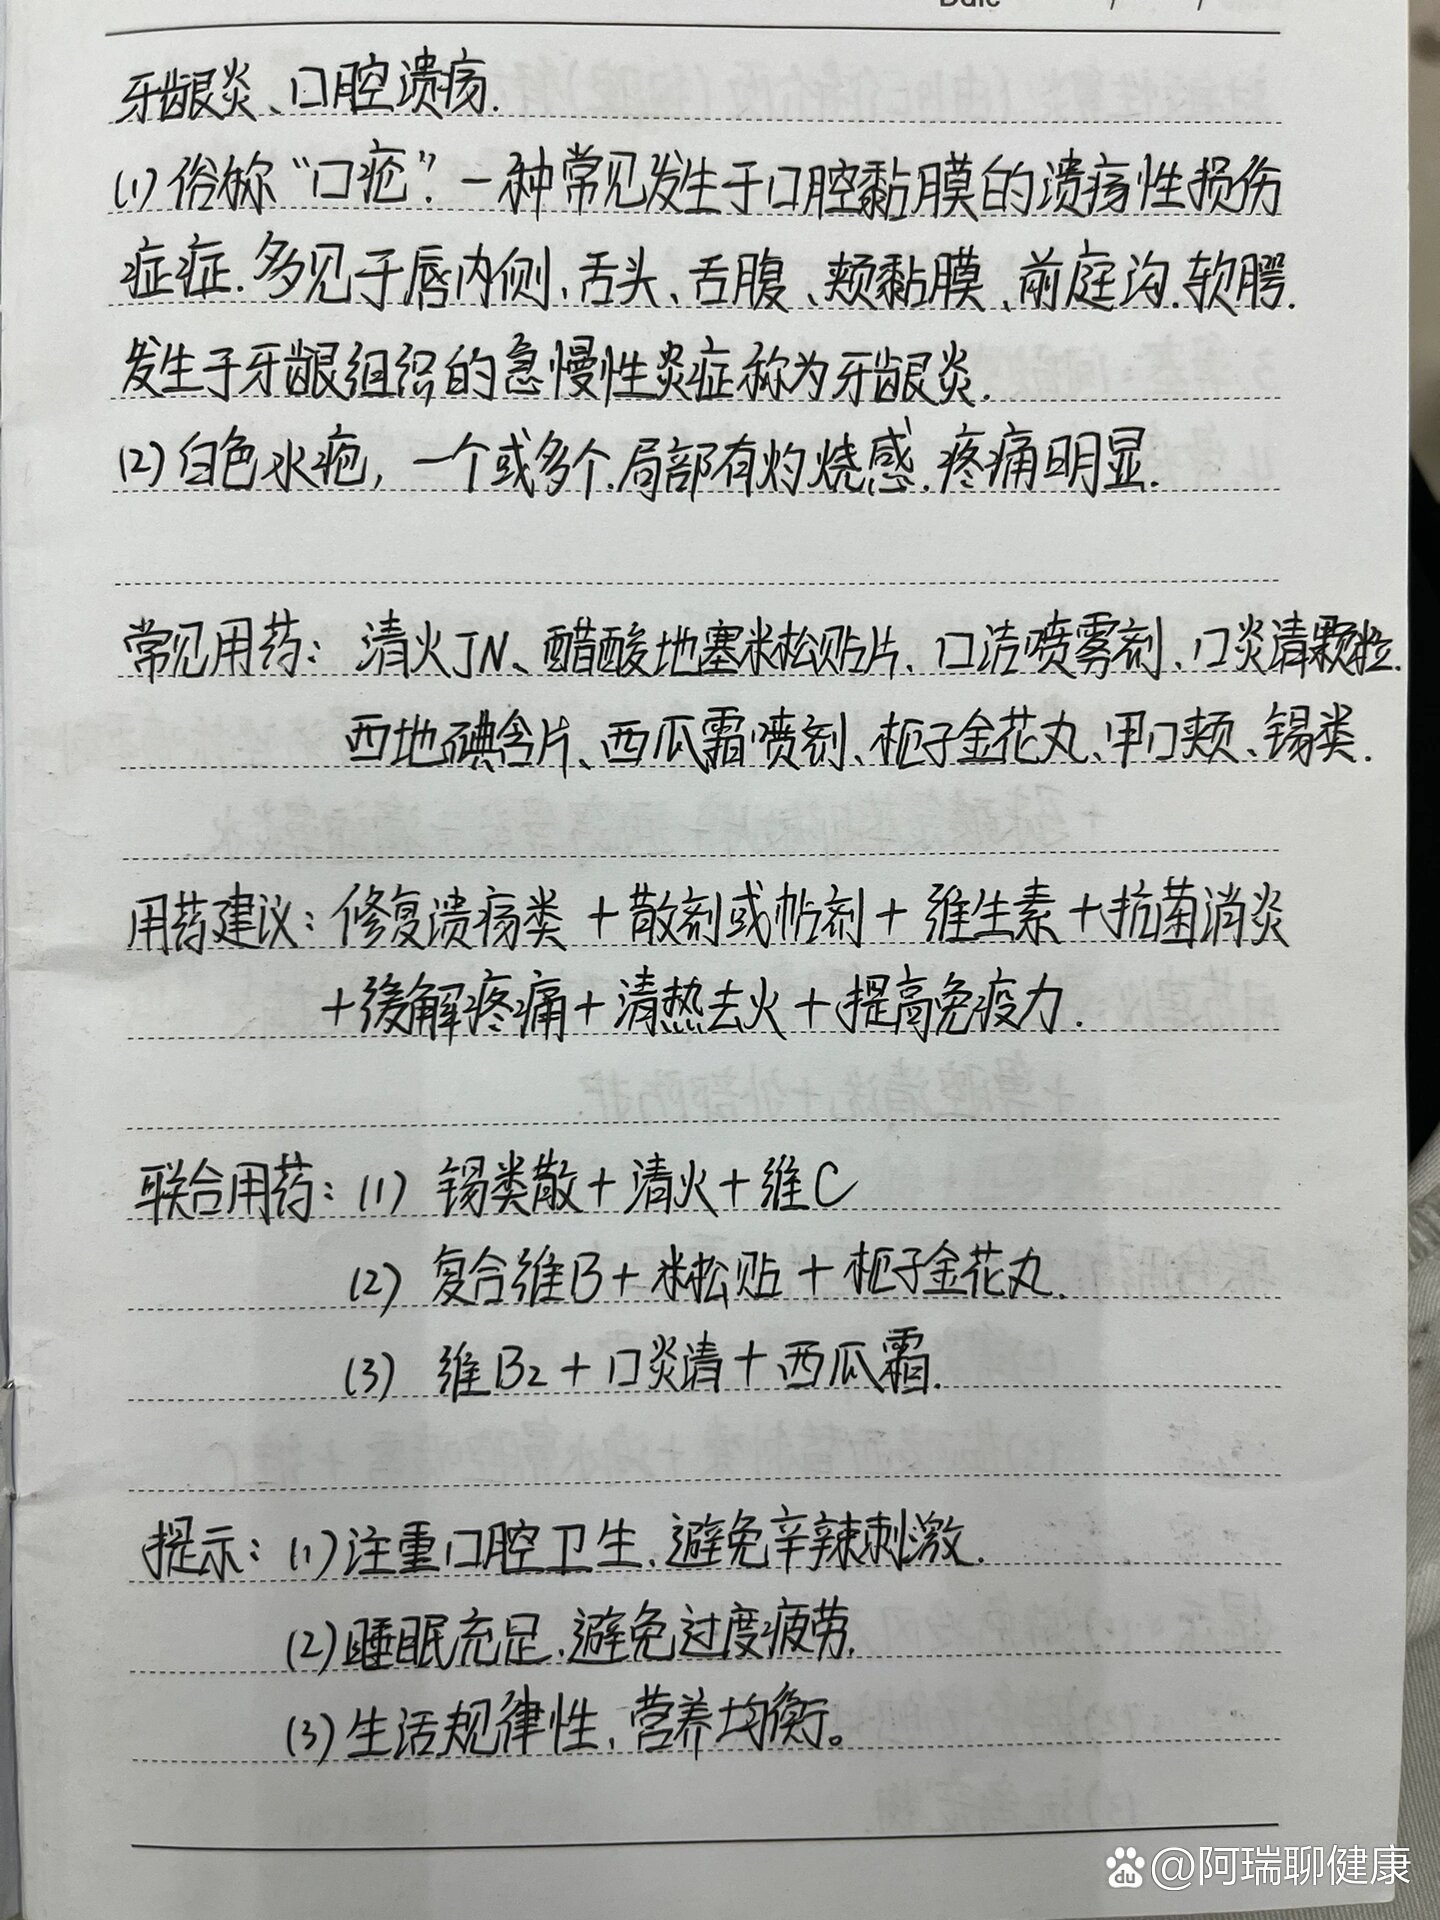 Date / /
牙龈炎、口腔溃疡.
(1)俗称“口疮”.一种常见发生于口腔黏膜的溃疡性损伤
症症.多见于唇内侧、舌头、舌腹、颊黏膜、前庭沟.软腭.
发生于牙龈组织的急慢性炎症称为牙龈炎.
(2)白色水疱,一个或多个.局部有灼烧感.疼痛明显.
常见用药:清火JN、醋酸地塞米松贴片、口洁喷雾剂、口炎清颗粒.
西地碘含片、西瓜霜喷剂、栀子金花丸、甲口颊、锡类.
用药建议:修复溃疡类+散剂或帖剂+维生素+抗菌消炎
+缓解疼痛+清热去火+提高免疫力.
联合用药:(1)锡类散+清火+维C
(2)复合维B+米松贴+栀子金花丸.
(3)维B2+口炎清+西瓜霜.
提示:(1)注重口腔卫生.避免辛辣刺激.
(2)睡眠充足.避免过度疲劳.
(3)生活规律性,营养均衡。
du @阿瑞聊健康